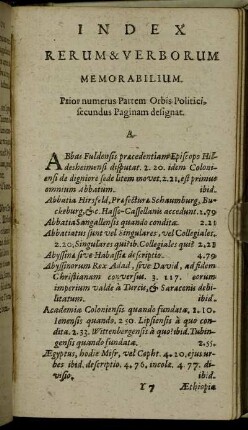 INDEX
RERUM & VERBORUM
MEMORABILIUM.
Prior numerus Partem Orbis Politici,
secundus Paginam designat.
A.
ABbas Fuldensis præcedentiam Episcopo Hil-
desheimensi disputat. 2. 20. idem Coloni-
ensi de digniore sede litem movet. 2.21. est primus
omnium Abbatum. ibid.
Abbatia Hirsfeld, Præfecturæ Schaumburg, Bu-
ckeburg, &c. Hasso-Cassellanis accedunt. 1.79
Abbatia Sangallensis quando condita. 2.21
Abbatiatus sunt vel Singulares, vel Collegiales,
2.20, Singulares qui ib. Collegiales qui 2.21
Abyssina sive Habassia descriptio. 4.79
Abyssinorum Rex Adad, sive David, ad fidem
Christianam conversus. 1.117. eorum
imperium valde à Turcis, & Saracenis debi-
litatum. ibid.
Academia Coloniensis quando fundata, 2. 10.
Ienensis quando, 2 50 Lipsiensis à quo con-
dita. 2.33. Wittenbergensis à quo? ibid. Tubin-
gensis quando fundata. 2.55.
Ægyptus, hodie Misr, vel Copht. 4. 20, ejus ur-
bes ibid. descriptio. 4. 76, incolæ. 4. 77. di-
visio. ibid.
Y 7 Æthiopia